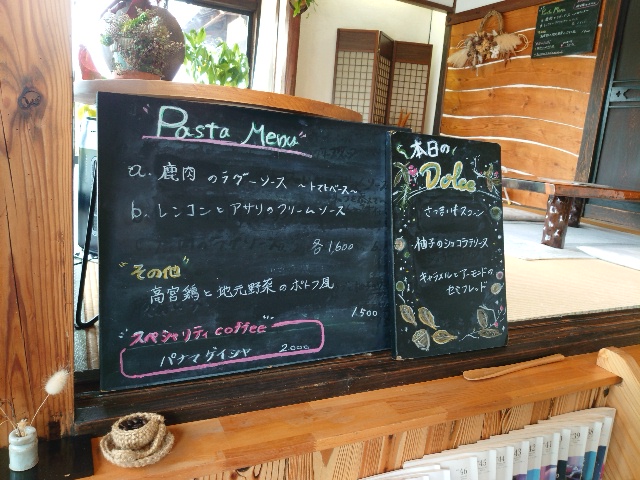 Pasta Menu
a. 鹿肉のラグーソース ～トマトベース～
b. レンコンとアサリのクリームソース
各1,600
"その他"
高宮鶏と地元野菜のポトフ風
1,500
"スペシャリティcoffee"
パナマゲイシャ 2000
本日の
Dolce
さつまいもスコーン
柚子のショコラテリーヌ
キャラメルとアーモンドの
セミフレッド
Pasta Menu